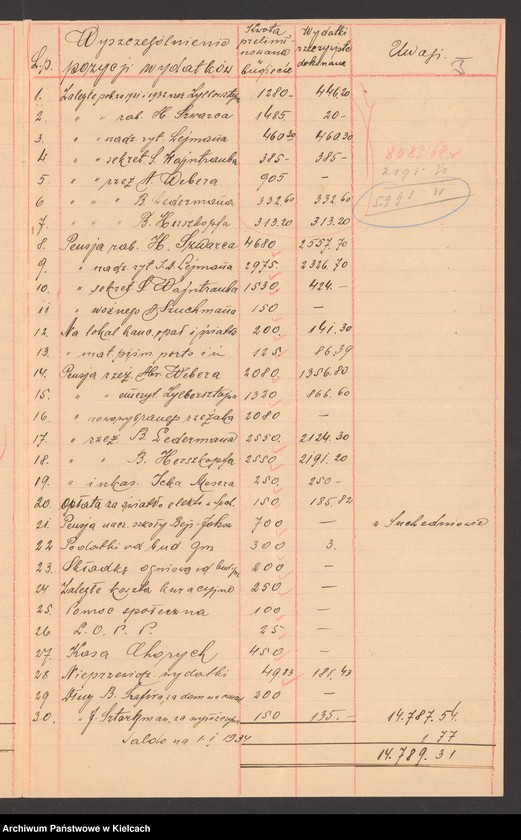 L.p. Wyszczególnienie pozycji wydatków Kwota prelimi-nowana w budżecie Wydatki rzeczywiste dokonane Uwagi.
1. Zaległe pob. 1931 i 1932 1280- 446,20
2. " " rab. H. Szwarca 1485. 20-
3. " " nadz. ryt. Lejmana 460 30 460.30
4 " " sekret. S. Wajntrauba 385- 385-
5 " " rzeź. N. Webera 905 -
6 " " " B. Ledermana 332.60 332.60
7. " " " B. Herszkopfa 313.20 313.20
8. Pensja rab. H. Szwarca 4680 2557.70
9. " nadz. ryt. Lejmana 2975. 2326.70
10. " sekret S Wajntrauba 1530. 424.-
11 " woźnego Szuchmana 150 -
12. Na lokal kanc. opał i światło 200, 141.30
13. " mat piśm. porto i in 125. 86.39
14. Pensja rzeź. Webera 2080. 1356.80
15. " " emeryt. 1320 866.60
16. " nowowybranego rzezaka 2080 -
17. " rzeź B. Ledermana 2550. 2124.30
18. " " B. Herszkopfa 2550 2191.20
19. " inkas. Icka Mosera 250. 250-
20. Opłata za światło elektr. 150, 185.82
21. Pensja naucz. szkoły 700 - w Suchedniowie
22 Podatki od bud. gm 300 3.
23. Składka ogniowa od bud. gm 200 -
24 Zaległe koszta kuracyjne 250 -
25. Pomoc społeczna 100 -
26 L.O.P.P. 25 -
27. Kasa Chorych 450 -
28 Nieprzewidz. wydatki 49,83 181.43
29 Długi B. Szafira, za dom 200 -
30. " J. Sztarkman, za 150 135.- 14.787.54
Saldo na 1.I 1934 1 77
14.789.31
8083
5991
Archiwum Państwowe w Kielcach